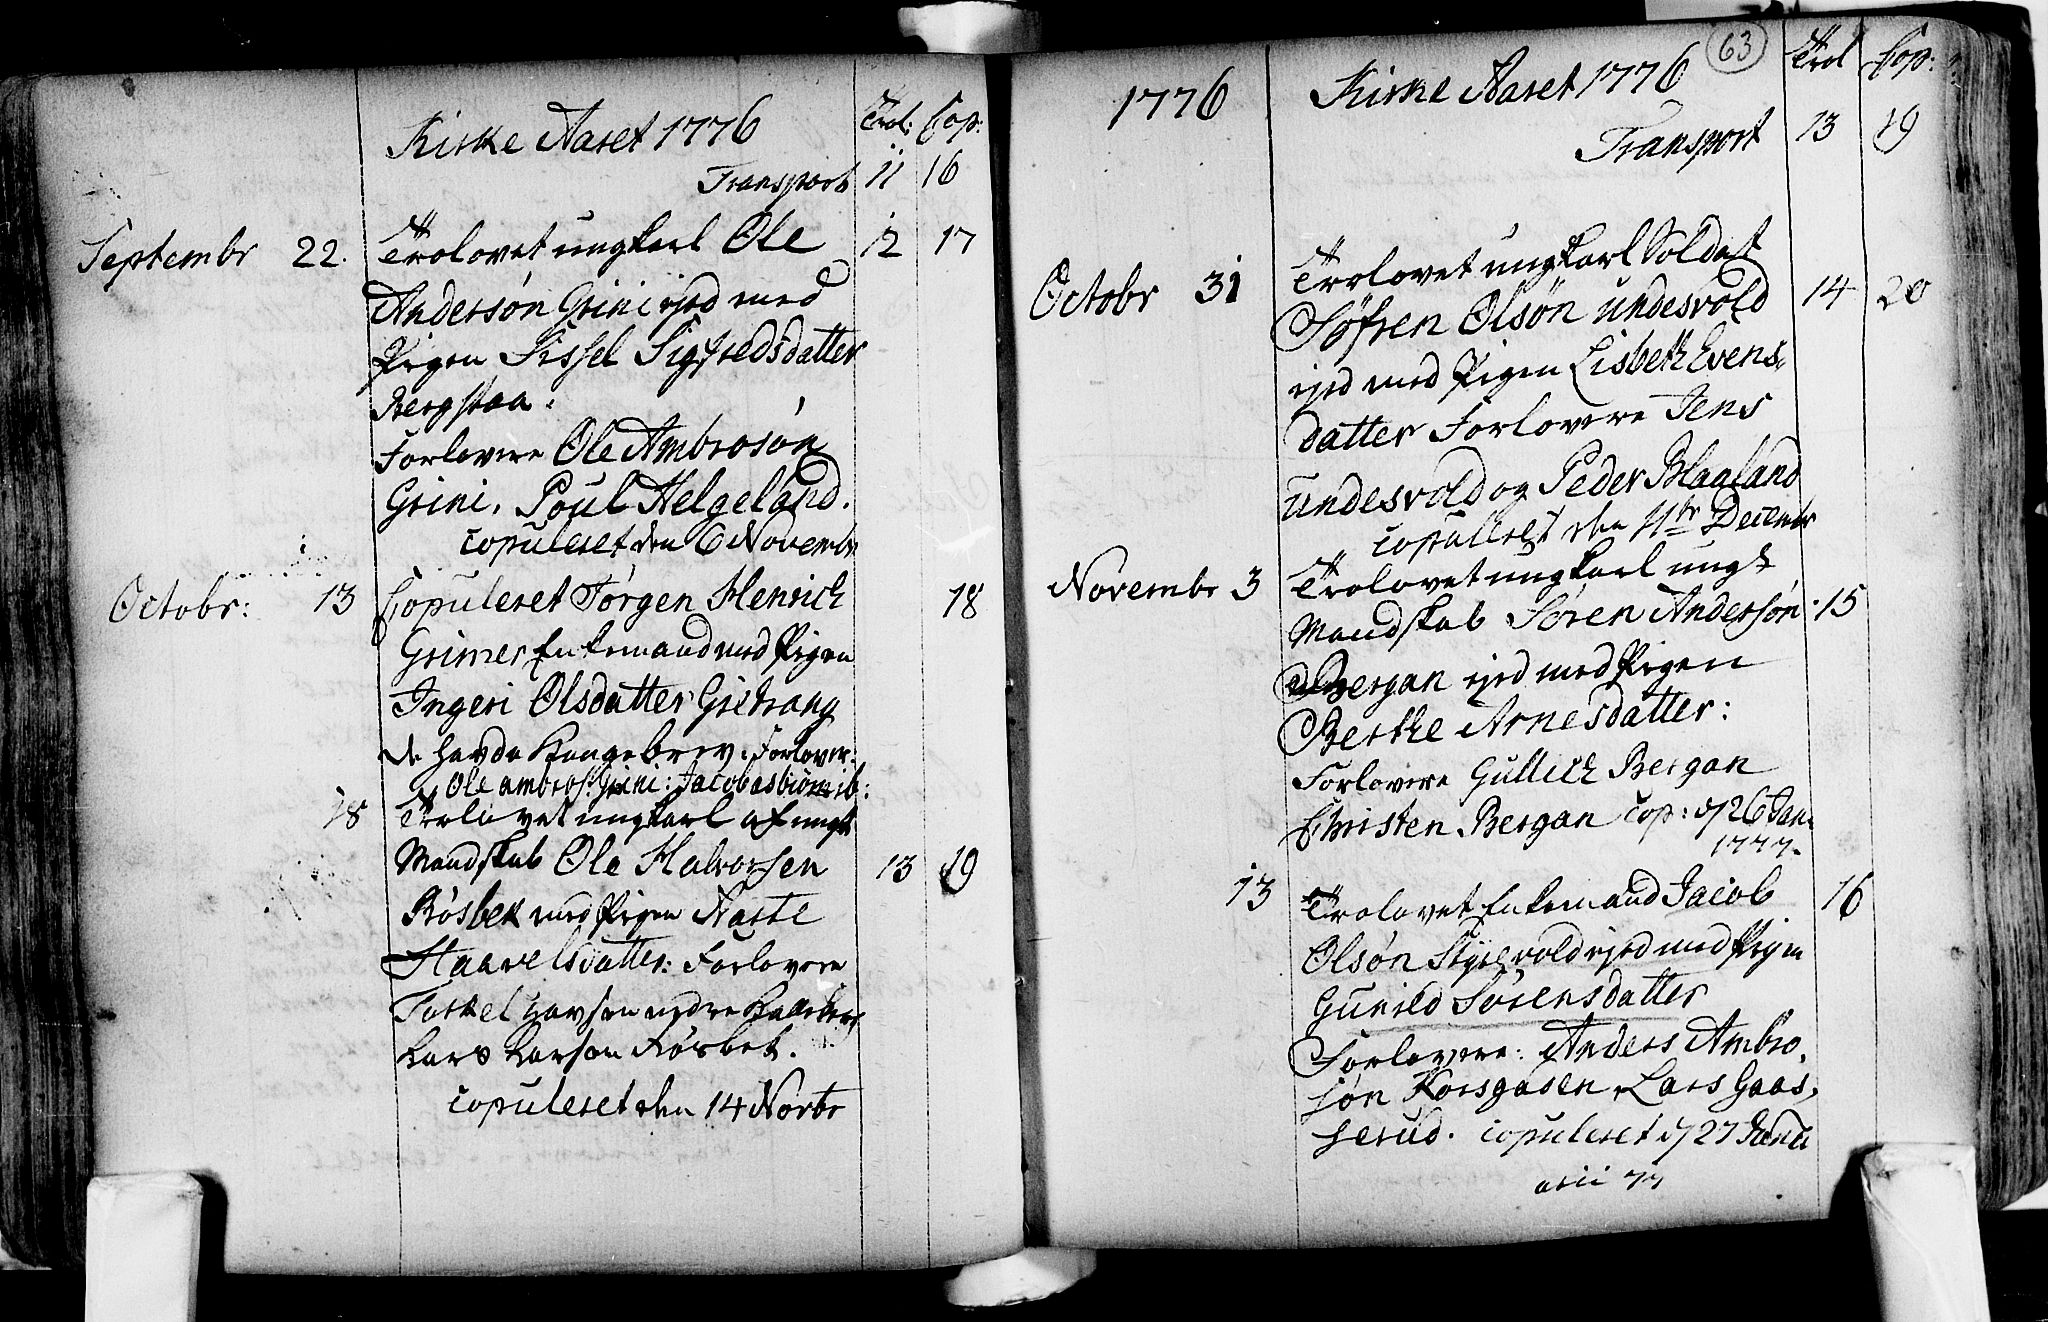 Kirke Aaret 1776
Trol: Cop:
Transport 11 16
Septembr 22. Trolovet ungkarl Ole 12 17
Andersøn Grini ejed med
Pigen Sissel Sigfredsdatter
Bergstaa.
Forlovere Ole Ambrosøn
Grini, Poul Helgeland.
copuleret den 6 Novembr
Octobr: 13 Copuleret Jørgen Henrich 18
Grimer Enkemand med Pigen
Ingeri Olsdatter Gretrang
de havde Kongebrev: Forlover:
Ole ambros: Grini: Jacob asbiørnrib:
18 Trolovet ungkarl af ungt
Mandskab Ole Halvorsen 13 19
Røsbek med Pigen Naste
Haavelsdatter: Forlovere
Torkel nedre
Lars Larsen Røsbek.
copuleret den 14 Novbr
63
1776 Kirke Aaret 1776 Trol Cop:
Transport 13 19
Octobr 31 Trolovet ungkarl Soldat
Søfren Olsøn Undesvold 14 20
ejed med Pigen Lisbeth Evens
datter Forlovere Jens
Undesvold og Peder Haaland
copulleret den 11te Decembr
Novembr 3 Trolovet ungkarl ungt
Mandskab Søren Andersøn 15
Bergan ejed med Pigen
Berthe Arnesdatter:
Forlovere Gullich Bergan
Christen Bergan cop: d/26 Jan:
1777.
13 Trolovet Enkemand Jacob 16
Olsøn Styrevold ejed med Pigen
Gunild Sørensdatter
Forlovere: Anders Ambro,
søn Korsgaden, Lars Gaas,
serud. copuleret d/27 Janu
arii 77